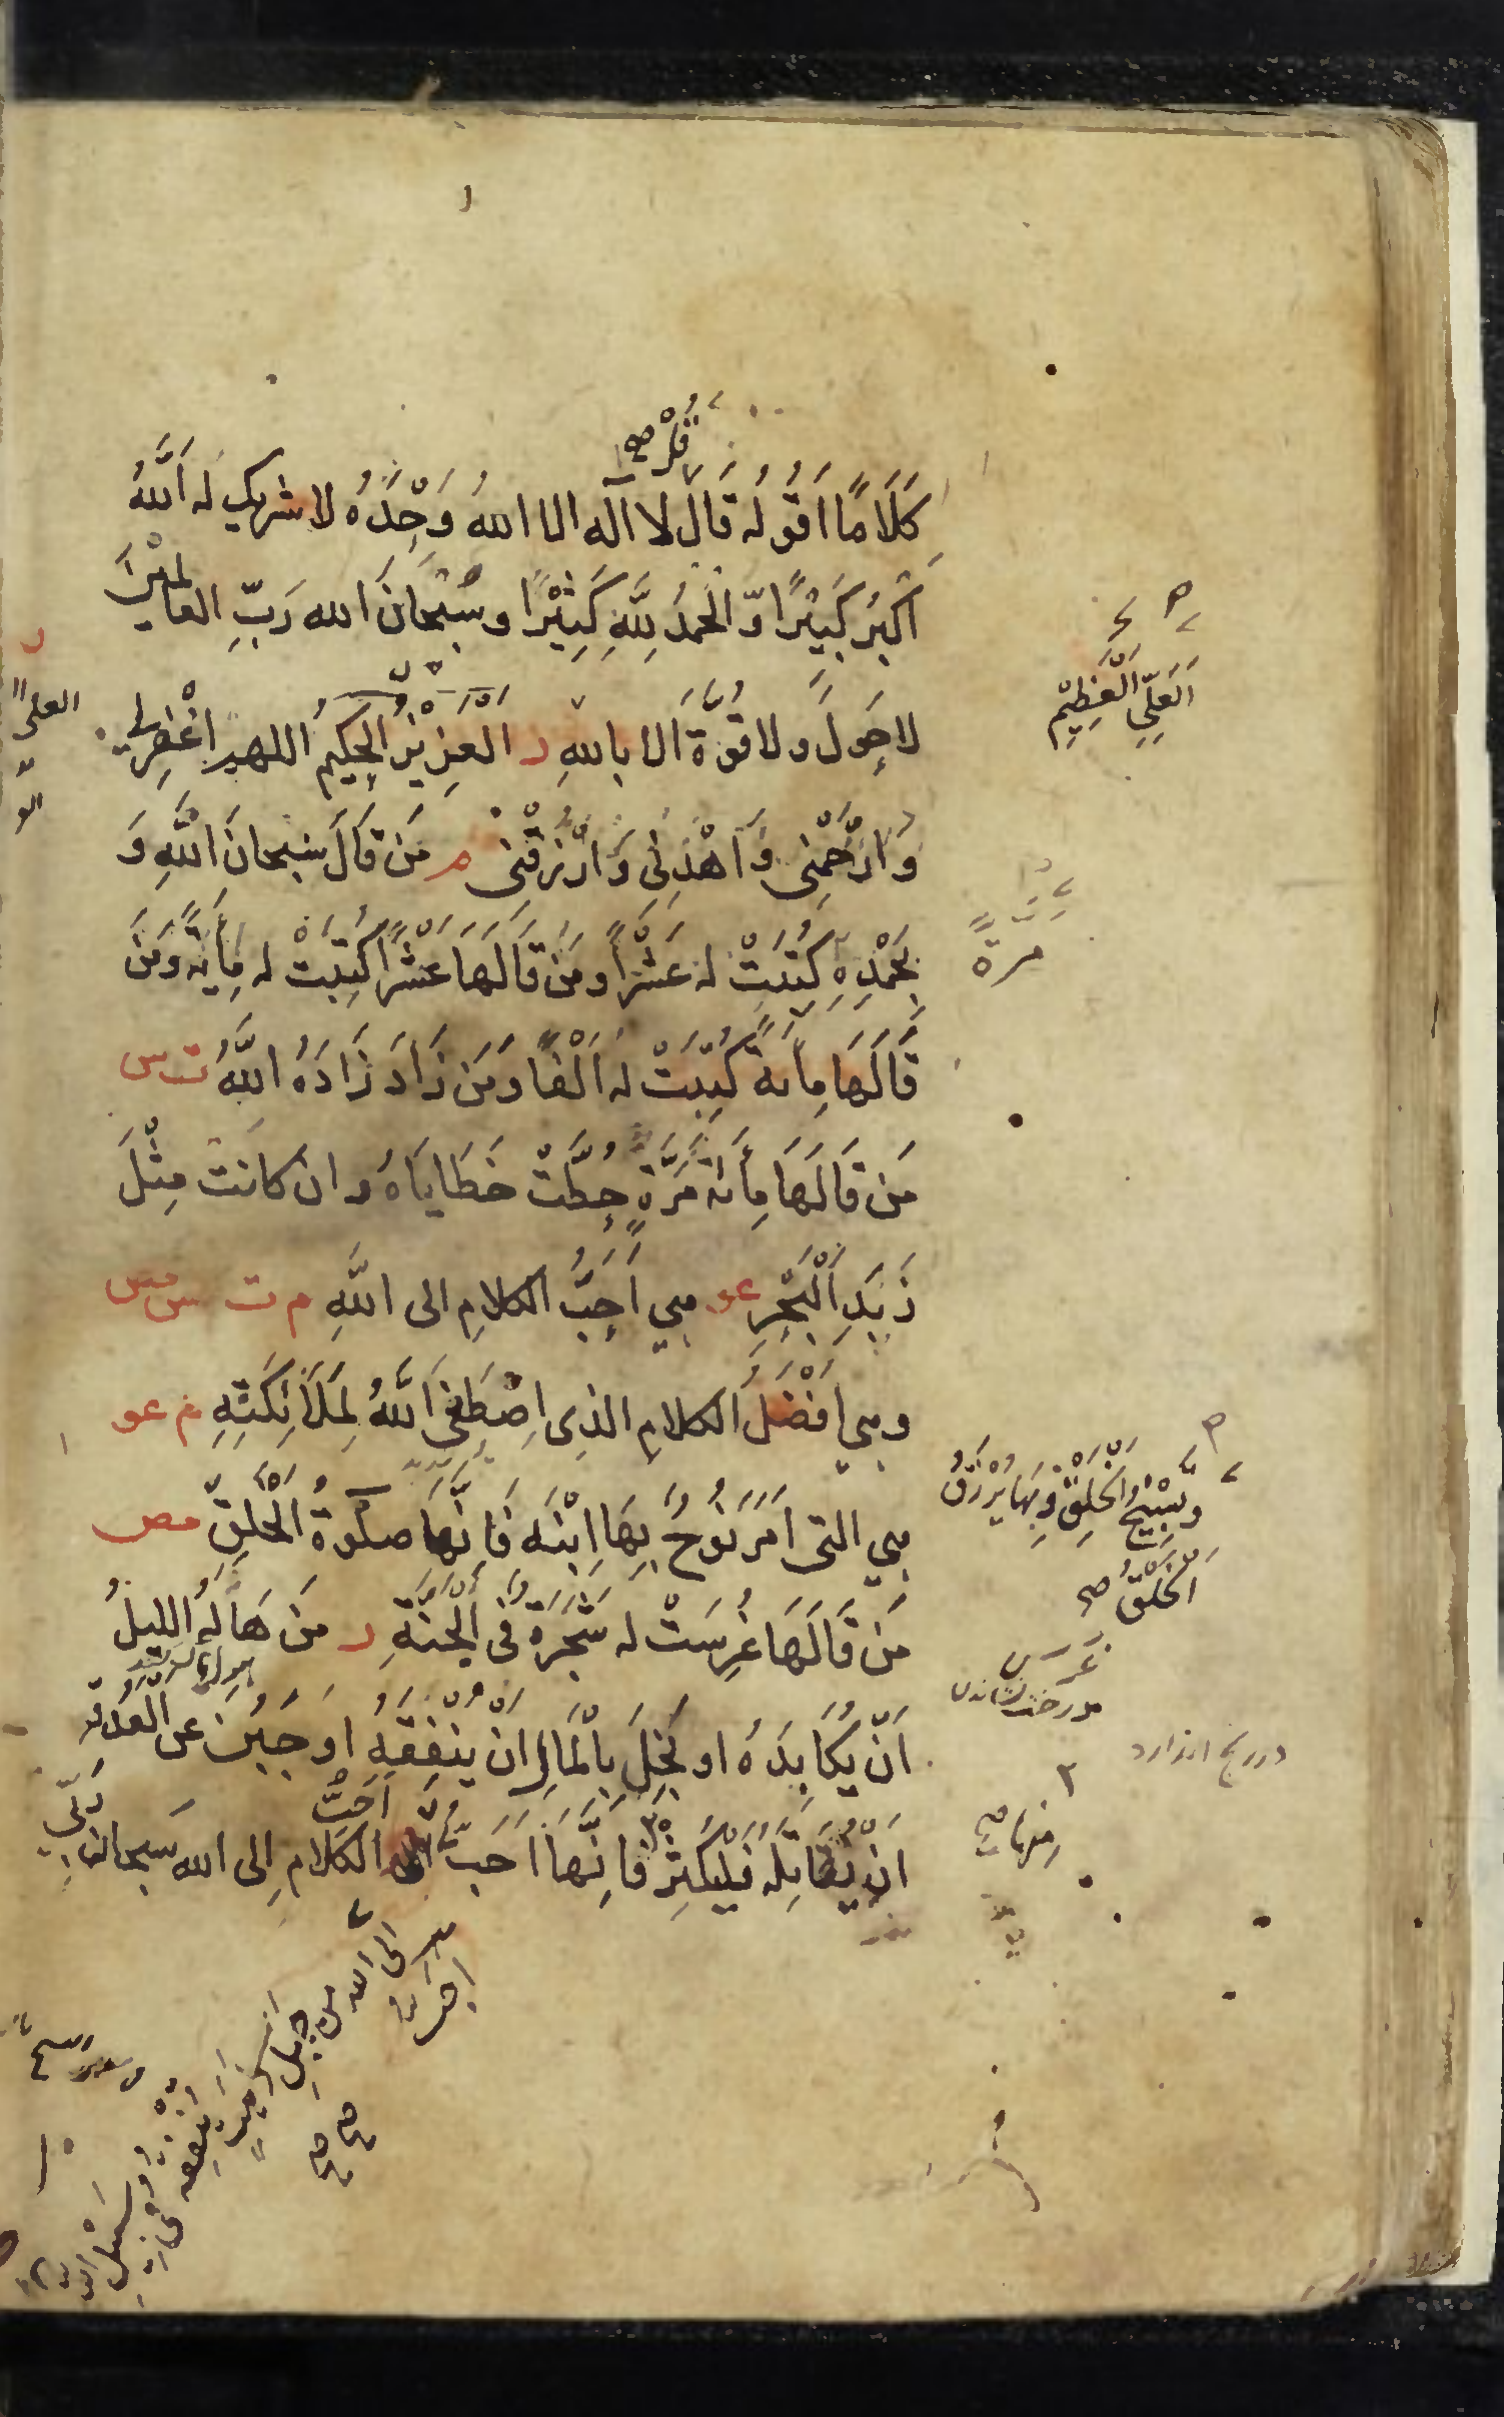 قُلْ صح
كَلَامًا اَقُولُه قَالَ لا اله الا اللهُ وَحْدَهُ لا شريك له اَللّٰهُ
اَكْبَرُ كَبِيْرًا وَّ الْحَمدُ لِلّٰهِ كَثِيْرًا وسُبْحَانَ الله رَبِّ العالمِيْنَ
لا حَولَ ولا قُوَّةَ الا بِاللهِ د العَزِيْزِ الحكِيمِ اللهم اغْفِرْلِي
وَارْحَمْنِى وَاهْدِنِى وَارْزُقْنِى م مَن قَالَ سُبحانَ اللّٰهِ وَ
بِحَمْدِهِ كُتِبَتْ له عَشْرًا ومَن قَالَهَا عَشْرًا كُتِبَتْ له مِأئَةً وَمَنْ
قَالَهَا مِأئة كُتِبَتْ له اَلْفًا وَمَن زَادَ زَادَهُ اللّٰهُ ت س
مَن قَالَهَا مِأئة مَرَّةٍ حُطَّتْ خَطَايَاهُ وان كانَتْ مِثْلَ
زَبَدِ الْبَحْرِ عو هي اَحَبُّ الكلامِ الى اللّٰهِ م ت س مص
وهي اَفْضَلُ الكلامِ الذى اصْطَفَى اللّٰهُ لِمَلَائِكَتِهِ م عو
هي التى اَمَرَ نُوْحٌ بِهَا ابْنَه فَاِنَّهَا صَلٰوةُ الْخَلْقِ مص
مَن قَالَهَا غُرِسَتْ له شَجَرَةٌ فى الْجَنَّةِ ر مَن هَالَهُ الليلُ
اَنْ يُكَابِدَهُ او بَخِلَ بِالْمَالِ اَنْ يُنْفِقَهِ اَو جَبُنَ عن الْعَدُوِّ
اَنْ يُقَاتِلَه فَلْيُكْثِرْ فَاِنَّهَا اَحَبُّ الكلامِ اِلى الله سبحان رَبِّي
اَلْعَلِيِّ الْعَظِيْمِ
مرة
وتَسْبِيْحُ الخلقِ وبها يُرْزَقُ
الخلقُ صح
غرس
درخت نشاندن
اَحَبُّ
الى الله من جبل
ذهب يُنفقه
فى سبيل الله
صح صح